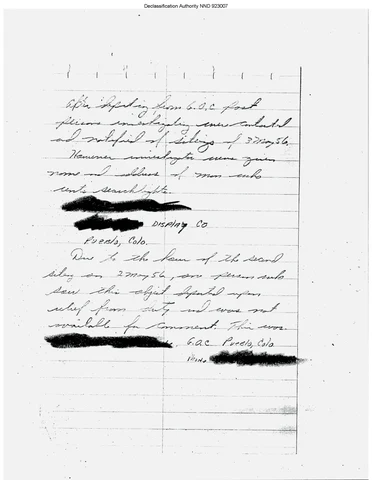 Declassification Authority NND 923007
After departing from G.O.C. Post
persons investigating were contacted
and notified of sitings of 3 May 56.
However investigators were given
name and address of man who
rents searchlights.
DISPLAY CO.
Pueblo, Colo.
Due to the hour of the second
siting on 2 May 56, one person who
saw this object departed upon
relief from duty and was not
available for comment. This was
G.O.C Pueblo, Colo